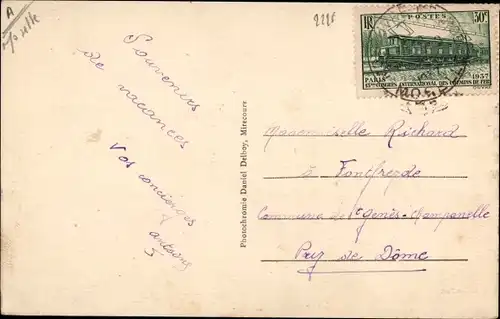 A
Souvenirs
de vacances
Vos concierges
Photochromie Daniel Delboy, Mirecourt
RF POSTES 30c
PARIS 1937
13ME CONGRES INTERNATIONAL DES CHEMINS DE FER
Mademoiselle Richard
à Fontfreyde
Commune de St Genès-Champanelle
Puy de Dôme